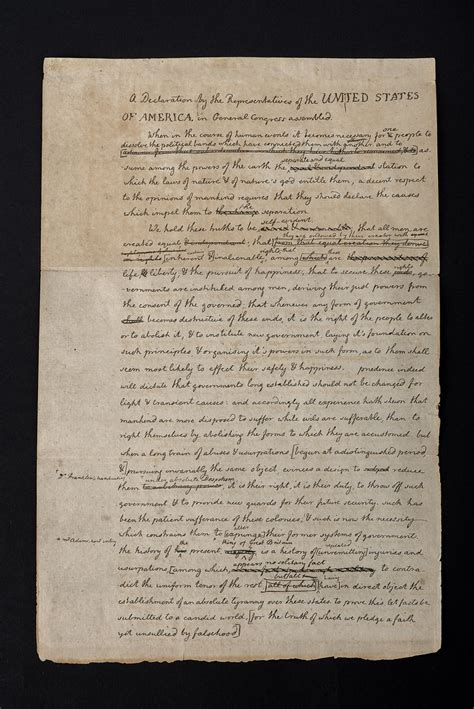 A Declaration By the Representatives of the UNITED STATES
OF AMERICA, in General Congress assembled.
When in the course of human words it becomes necessary for one people to
dissolve the political bands which have connected them with another, and to as-
separate and equal
sume among the powers of the earth the station to
which the laws of nature & of nature's god entitle them, a decent respect
to the opinions of mankind requires that they should declare the causes
which impel them to the separation.
self-evident
We hold these truths to be that all men are
they are endowed by their creator with
created equal that
rights; that
inherent & inalienable, among which are
life & liberty, & the pursuit of happiness; that to secure these rights, go-
vernments are instituted among men, deriving their just powers from
the consent of the governed; that whenever any form of government
becomes destructive of these ends, it is the right of the people to alter
or to abolish it, & to institute new government, laying it's foundation on
such principles, & organising it's powers in such form, as to them shall
seem most likely to effect their safety & happiness. prudence indeed
will dictate that governments long established should not be changed for
light & transient causes: and accordingly all experience hath shewn that
mankind are more disposed to suffer while evils are sufferable, than to
right themselves by abolishing the forms to which they are accustomed. but
when a long train of abuses & usurpations [begun at a distinguished period
& pursuing invariably the same object, evinces a design to reduce
under absolute Despotism
them it is their right, it is their duty, to throw off such
government, & to provide new guards for their future security. such has
been the patient sufferance of these colonies, & such is now the necessity
which constrains them to [expunge] their former systems of government.
alter
the King of Great Britain
the history of present is a history of [unremitting] injuries and
repeated
appears no solitary fact
usurpations, [among which to contra-
but all
dict the uniform tenor of the rest [all of which] [have] in direct object the
establishment of an absolute tyranny over these states. to prove this let facts be
submitted to a candid world, [for the truth of which we pledge a faith
yet unsullied by falsehood]